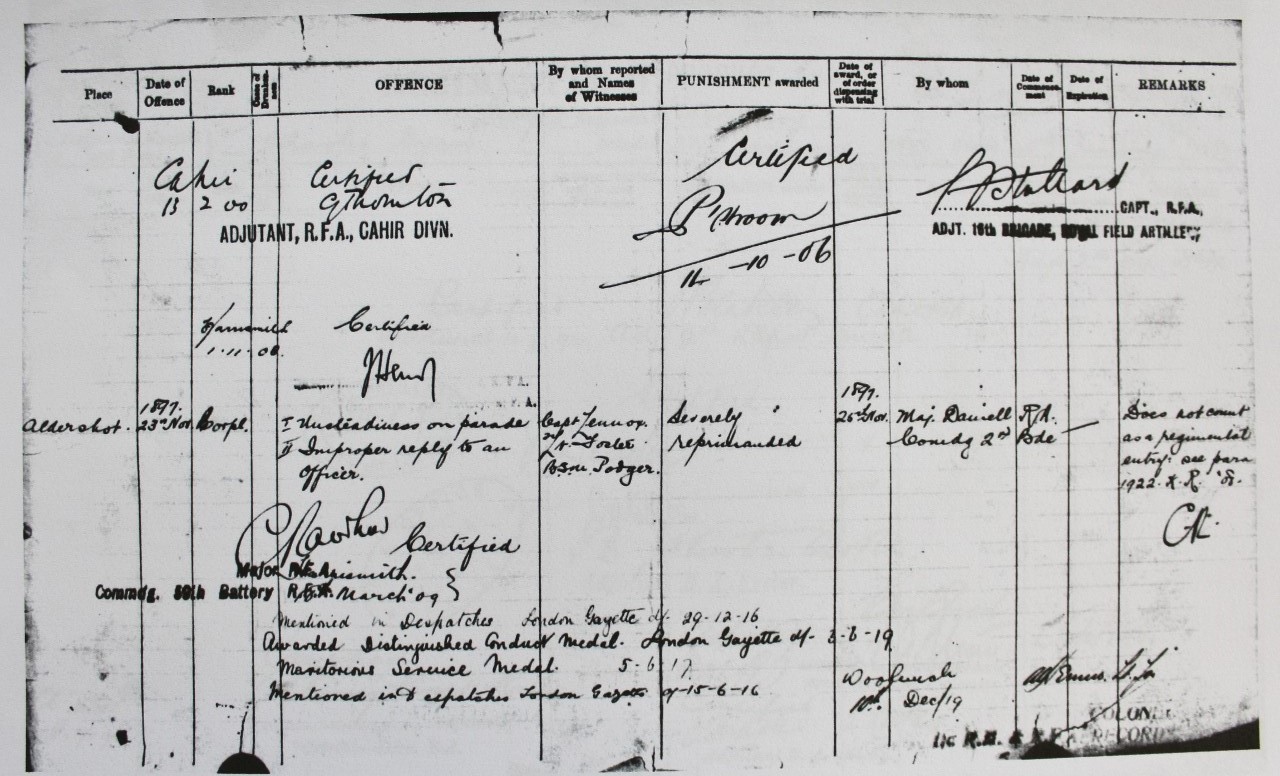 Place
Date of Offence
Rank
Cases of Drunkenness
OFFENCE
By whom reported and Names of Witnesses
PUNISHMENT awarded
Date of award, or of order dispensing with trial
By whom
Date of Commencement
Date of Expiration
REMARKS
Cahir
13 2 00
Certified
GThornton
ADJUTANT, R.F.A., CAHIR DIVN.
Certified
-10-06
CAPT., R.F.A.,
ADJT. 16th BRIGADE, ROYAL FIELD ARTILLERY
Certified
JHenry
1897.
Aldershot. 23rd Nov. Corpl.
I Unsteadiness on parade
II Improper reply to an
Officer.
Capt Lennox
Lt Foster
BSM. Podger.
Severely
reprimanded
1897.
25th Nov.
Maj. Daniell R.A.
Comdg 2nd Bde
Does not count
as a regimental
entry: see para
1922. K.R.
Certified
Major R.F.A.
Commdg. Battery R.F.A.
March 09
Mentioned in Despatches London Gazette d/- 29-12-16
Awarded Distinguished Conduct Medal. London Gazette d/- 3-6-19
Meritorious Service Medal. 5-6-17
Mentioned in Despatches London Gazette d/-15-6-16
Woolwich
10th Dec/19
COLONEL
R.H. & R.F.A. RECORDS